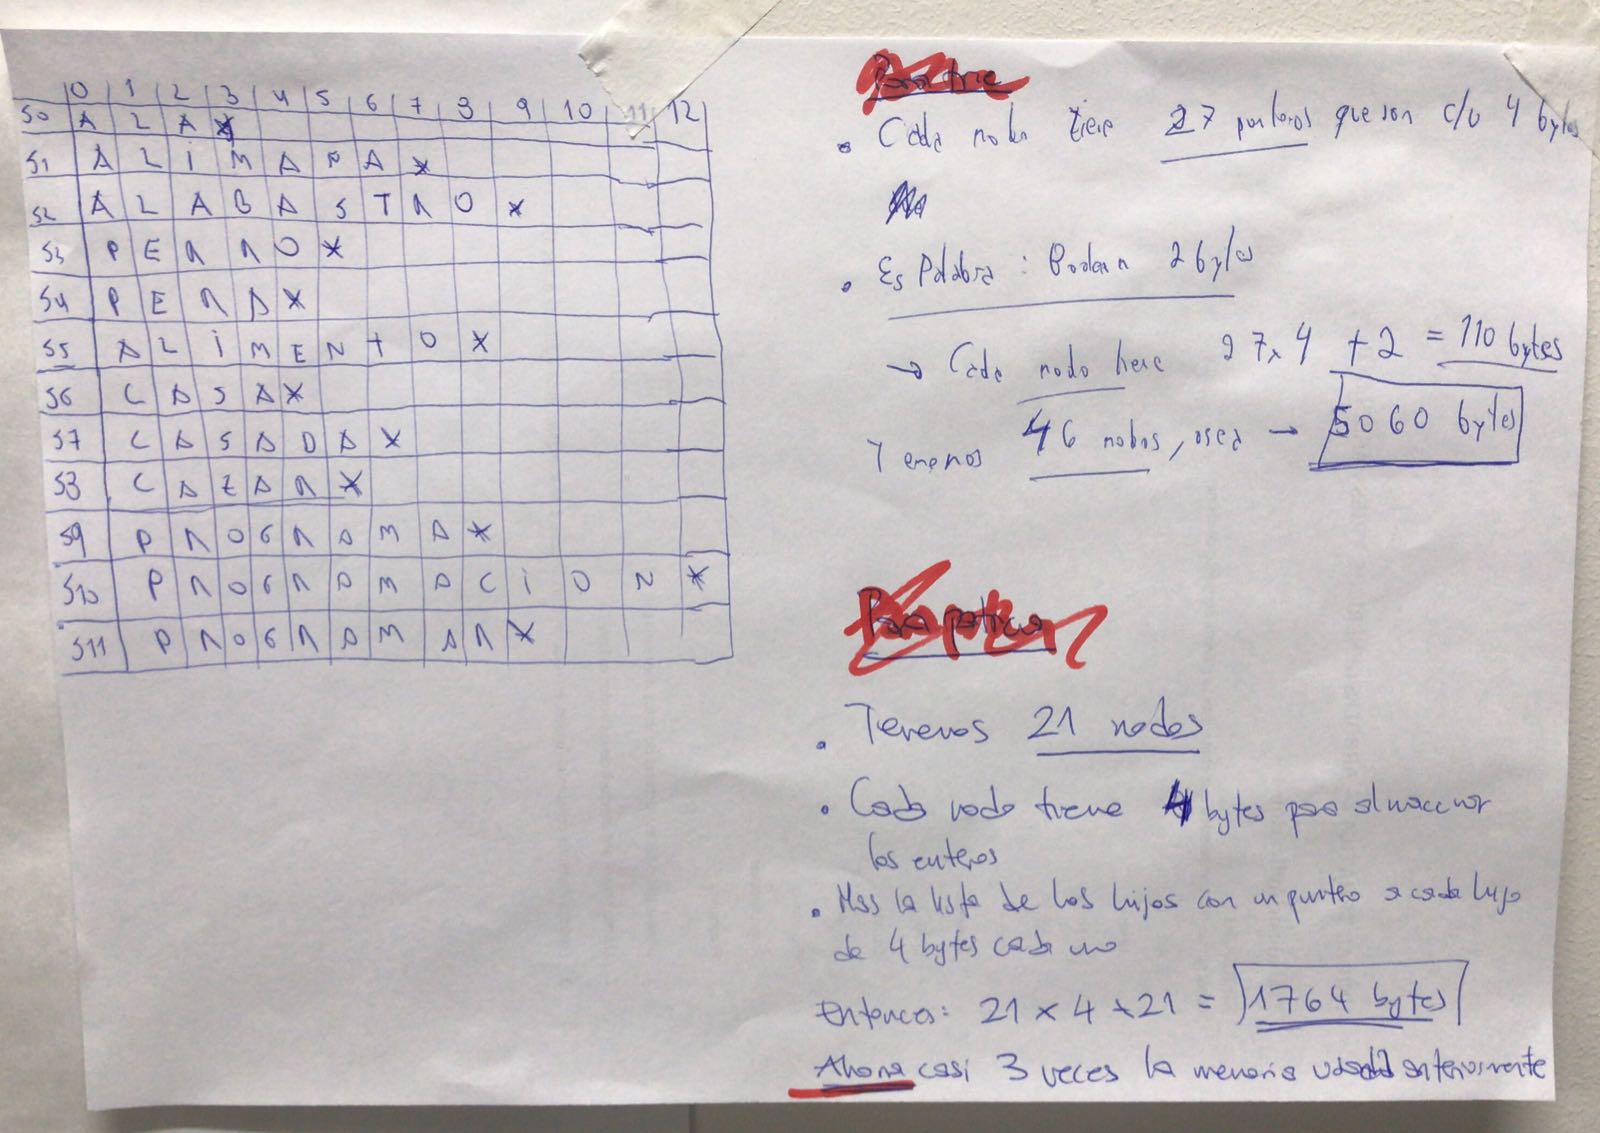 0 1 2 3 4 5 6 7 8 9 10 11 12
S0 A L A *
S1 A L i M A R A *
S2 A L A B A S T R O *
S3 P E R R O *
S4 P E R A *
S5 A L i M E N T O *
S6 C A S A *
S7 C A S A D A *
S8 C A Z A R *
S9 P R O G R A M A *
S10 P R O G R A M A C i O N *
S11 P R O G R A M A R *
Para trie
• Cada nodo tiene 27 punteros que son c/u 4 bytes
• Es Palabra : Boolean 2 bytes
→ Cada nodo tiene 27 x 4 + 2 = 110 bytes
Tenemos 46 nodos, osea → 5060 bytes
Para patricia
• Tenemos 21 nodos
• Cada nodo tiene 4 bytes para almacenar
los enteros
• Mas la lista de los hijos con un puntero a cada hijo
de 4 bytes cada uno
Entonces: 21 x 4 x 21 = 1764 bytes
Ahorra casi 3 veces la memoria usada anteriormente